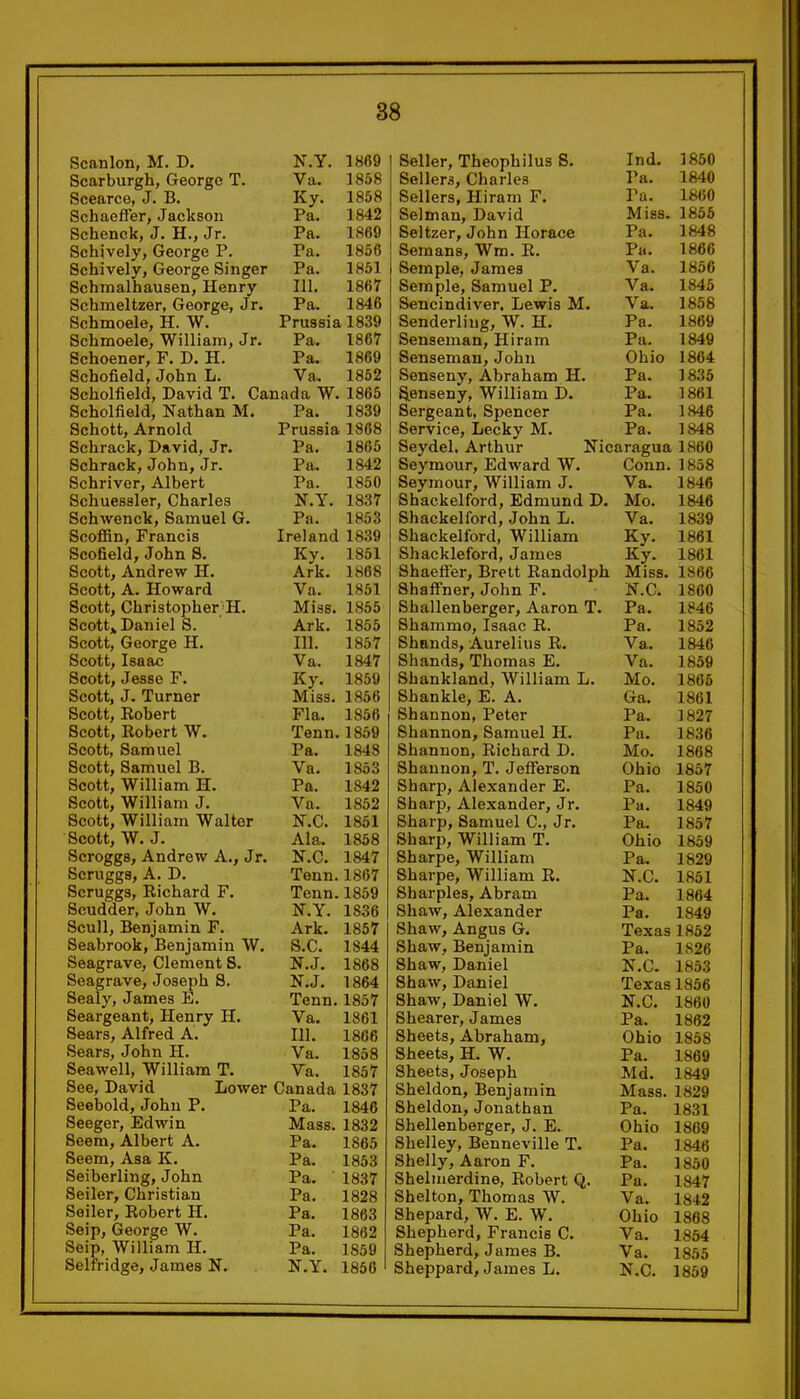 38
Scanlon, M. D. N.Y. 1869
Scarburgh, George T. Va. 1858
Scearce, J. B. Ky. 1858
Schaeffer, Jackson Pa. 1842
Schenck, J. H., Jr. Pa. 1869
Schively, George P. Pa. 1856
Schively, George Singer Pa. 1851
Schmalhausen, Henry Ill. 1867
Schmeltzer, George, Jr. Pa. 1846
Schmoele, H. W. Prussia 1839
Schmoele, William, Jr. Pa. 1867
Schoener, F. D. H. Pa. 1869
Schofield, John L. Va. 1852
Scholfield, David T. Canada W. 1865
Scholfield, Nathan M. Pa. 1839
Schott, Arnold Prussia 1868
Schrack, David, Jr. Pa. 1865
Schrack, John, Jr. Pa. 1842
Schriver, Albert Pa. 1850
Schuessler, Charles N.Y. 1837
Schwenck, Samuel G. Pa. 1853
Scoffin, Francis Ireland 1839
Scofield, John S. Ky. 1851
Scott, Andrew H. Ark. 1868
Scott, A. Howard Va. 1851
Scott, Christopher H. Miss. 1855
Scott, Daniel S. Ark. 1855
Scott, George H. Ill. 1857
Scott, Isaac Va. 1847
Scott, Jesse F. Ky. 1859
Scott, J. Turner Miss. 1856
Scott, Robert Fla. 1856
Scott, Robert W. Tenn. 1859
Scott, Samuel Pa. 1848
Scott, Samuel B. Va. 1853
Scott, William H. Pa. 1842
Scott, William J. Va. 1852
Scott, William Walter N.C. 1851
Scott, W. J. Ala. 1858
Scroggs, Andrew A., Jr. N.C. 1847
Scruggs, A. D. Tenn. 1867
Scruggs, Richard F. Tenn. 1859
Scudder, John W. N.Y. 1836
Scull, Benjamin F. Ark. 1857
Seabrook, Benjamin W. S.C. 1844
Seagrave, Clement S. N.J. 1868
Seagrave, Joseph S. N.J. 1864
Sealy, James E. Tenn. 1857
Seargeant, Henry H. Va. 1861
Sears, Alfred A. Ill. 1866
Sears, John H. Va. 1858
Seawell, William T. Va. 1857
See, David Lower Canada 1837
Seebold, John P. Pa. 1846
Seeger, Edwin Mass. 1832
Seem, Albert A. Pa. 1865
Seem, Asa K. Pa. 1853
Seiberling, John Pa. 1837
Seiler, Christian Pa. 1828
Seiler, Robert H. Pa. 1863
Seip, George W. Pa. 1862
Seip, William H. Pa. 1859
Selfridge, James N. N.Y. 1856
Seller, Theophilus S. Ind. 1850
Sellers, Charles Pa. 1840
Sellers, Hiram F. Pa. 1860
Selman, David Miss. 1855
Seltzer, John Horace Pa. 1848
Semans, Wm. R. Pa. 1866
Semple, James Va. 1856
Semple, Samuel P. Va. 1845
Sencindiver, Lewis M. Va. 1858
Senderling, W. H. Pa. 1869
Senseman, Hiram Pa. 1849
Senseman, John Ohio 1864
Senseny, Abraham H. Pa. 1835
Senseny, William D. Pa. 1861
Sergeant, Spencer Pa. 1846
Service, Lecky M. Pa. 1848
Seydel, Arthur Nicaragua 1860
Seymour, Edward W. Conn. 1858
Seymour, William J. Va. 1846
Shackelford, Edmund D. Mo. 1846
Shackelford, John L. Va. 1839
Shackelford, William Ky. 1861
Shackleford, James Ky. 1861
Shaeffer, Brett Randolph Miss. 1866
Shaffner, John F. N.C. 1860
Shallenberger, Aaron T. Pa. 1846
Shammo, Isaac R. Pa. 1852
Shands, Aurelius R. Va. 1846
Shands, Thomas E. Va. 1859
Shankland, William L. Mo. 1865
Shankle, E. A. Ga. 1861
Shannon, Peter Pa. 1827
Shannon, Samuel H. Pa. 1836
Shannon, Richard D. Mo. 1868
Shannon, T. Jefferson Ohio 1857
Sharp, Alexander E. Pa. 1850
Sharp, Alexander, Jr. Pa. 1849
Sharp, Samuel C., Jr. Pa. 1857
Sharp, William T. Ohio 1859
Sharpe, William Pa. 1829
Sharpe, William R. N.C. 1851
Sharples, Abram Pa. 1864
Shaw, Alexander Pa. 1849
Shaw, Angus G. Texas 1852
Shaw, Benjamin Pa. 1826
Shaw, Daniel N.C. 1853
Shaw, Daniel Texas 1856
Shaw, Daniel W. N.C. 1860
Shearer, James Pa. 1862
Sheets, Abraham, Ohio 1858
Sheets, H. W. Pa. 1869
Sheets, Joseph Md. 1849
Sheldon, Benjamin Mass. 1829
Sheldon, Jonathan Pa. 1831
Shellenberger, J. E. Ohio 1869
Shelley, Benneville T. Pa. 1846
Shelly, Aaron F. Pa. 1850
Shelmerdine, Robert Q. Pa. 1847
Shelton, Thomas W. Va. 1842
Shepard, W. E. W. Ohio 1868
Shepherd, Francis C. Va. 1854
Shepherd, James B. Va. 1855
Sheppard, James L. N.C. 1859